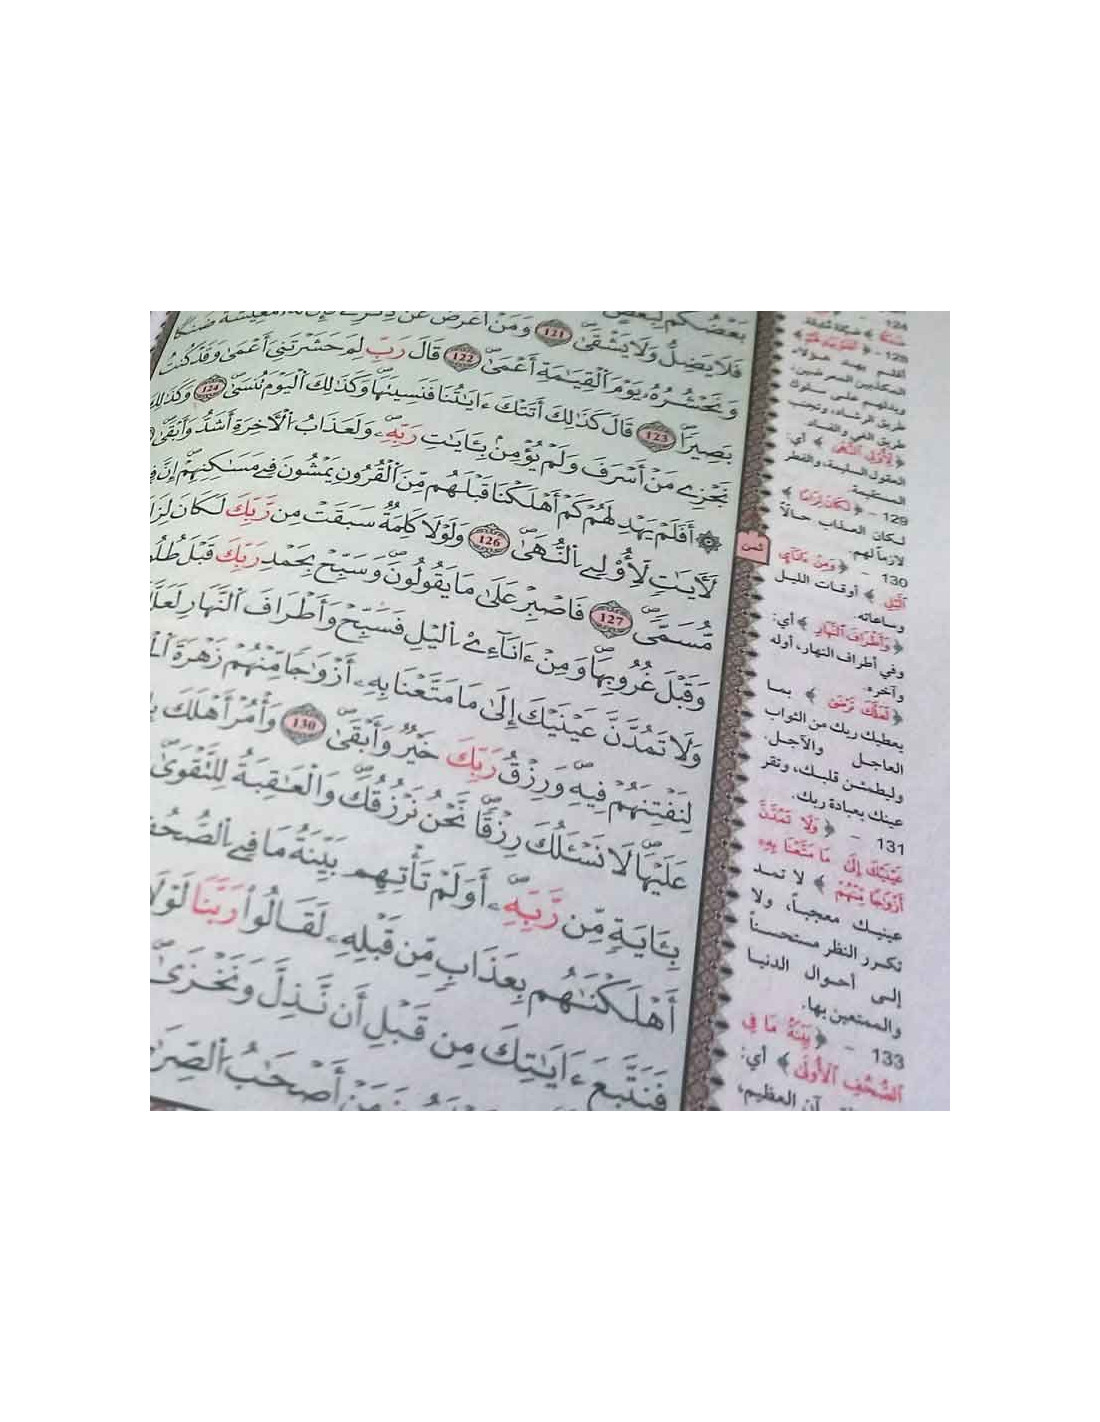 بَعْضُكُمْ لِبَعْضٍ
فَلَا يَضِلُّ وَلَا يَشْقَىٰ 121 وَمَنْ أَعْرَضَ عَن ذِكْرِے فَإِنَّ لَهُۥ مَعِيشَةً ضَنكًا
وَنَحْشُرُهُۥ يَوْمَ ٱلْقِيَٰمَةِ أَعْمَىٰ 122 قَالَ رَبِّ لِمَ حَشَرْتَنِىَ أَعْمَىٰ وَقَدْ كُنتُ
بَصِيرًا 123 قَالَ كَذَٰلِكَ أَتَتْكَ ءَايَٰتُنَا فَنَسِيتَهَا وَكَذَٰلِكَ ٱلْيَوْمَ تُنسَىٰ 124 وَكَذَٰلِكَ
نَجْزِے مَنْ أَسْرَفَ وَلَمْ يُؤْمِنۢ بِـَٔايَٰتِ رَبِّهِۦ وَلَعَذَابُ ٱلْأَخِرَةِ أَشَدُّ وَأَبْقَىٰ
۞ أَفَلَمْ يَهْدِ لَهُمْ كَمْ أَهْلَكْنَا قَبْلَهُم مِّنَ ٱلْقُرُونِ يَمْشُونَ فِے مَسَٰكِنِهِمْ إِنَّ فِے
لَأَيَٰتٍ لِّأُوْلِے ٱلنُّهَىٰ 126 وَلَوْلَا كَلِمَةٌ سَبَقَتْ مِن رَّبِّكَ لَكَانَ
مُّسَمًّى 127 فَاصْبِرْ عَلَىٰ مَا يَقُولُونَ وَسَبِّحْ بِحَمْدِ رَبِّكَ قَبْلَ
وَقَبْلَ غُرُوبِهَا وَمِنْ ءَانَآءِےْ ٱلَيْلِ فَسَبِّحْ وَأَطْرَافَ ٱلنَّهَارِ
وَلَا تَمُدَّنَّ عَيْنَيْكَ إِلَىٰ مَا مَتَّعْنَا بِهِۦ أَزْوَٰجًا مِّنْهُمْ زَهْرَةَ
لِنَفْتِنَهُمْ فِيهِ وَرِزْقُ رَبِّكَ خَيْرٌ وَأَبْقَىٰ 130 وَأْمُرْ أَهْلَكَ
عَلَيْهَا لَا نَسْـَٔلُكَ رِزْقًا نَّحْنُ نَرْزُقُكَ وَالْعَٰقِبَةُ لِلتَّقْوَىٰ
بِـَٔايَةٍ مِّن رَّبِّهِۦ أَوَلَمْ تَأْتِهِم بَيِّنَةُ مَا فِے ٱلصُّحُفِ
أَهْلَكْنَٰهُم بِعَذَابٍ مِّن قَبْلِهِۦ لَقَالُوا۟ رَبَّنَا لَوْلَا
فَنَتَّبِعَ ءَايَٰتِكَ مِن قَبْلِ أَن نَّذِلَّ وَنَخْزَىٰ
أَصْحَٰبُ ٱلصِّرَٰطِ
ثمن
128 -
أفلم يهد هؤلاء
المكذبين المعرضين،
ويدلهم على سلوك
طريق الرشاد، وتجنب
طريق الغي والفساد.
﴿ لِأُوْلِى ٱلنُّهَىٰ ﴾ أي:
العقول السليمة، والفطر
المستقيمة.
129 - ﴿ لَكَانَ لِزَامًا ﴾
لكان العذاب حالاً
لازماً لهم.
130 - ﴿ وَمِنْ ءَانَآئِ
ٱلَّيْلِ ﴾ أوقات الليل
وساعاته
﴿ وَأَطْرَافَ ٱلنَّهَارِ ﴾ أي:
وفي أطراف النهار، أوله
وآخره.
﴿ لَعَلَّكَ تَرْضَىٰ ﴾ بما
يعطيك ربك من الثواب
العاجل والآجل.
وليطمئن قلبك، وتقر
عينك بعبادة ربك.
131 - ﴿ وَلَا تَمُدَّنَّ
عَيْنَيْكَ إِلَىٰ مَا مَتَّعْنَا بِهِۦ
أَزْوَٰجًا مِّنْهُمْ ﴾ لا تمد
عينيك معجباً، ولا
تكرر النظر مستحسناً
إلى أحوال الدنيا
والممتعين بها.
133 - ﴿ بَيِّنَةُ مَا فِى
ٱلصُّحُفِ ٱلْأُولَىٰ ﴾ أي:
العظيم،